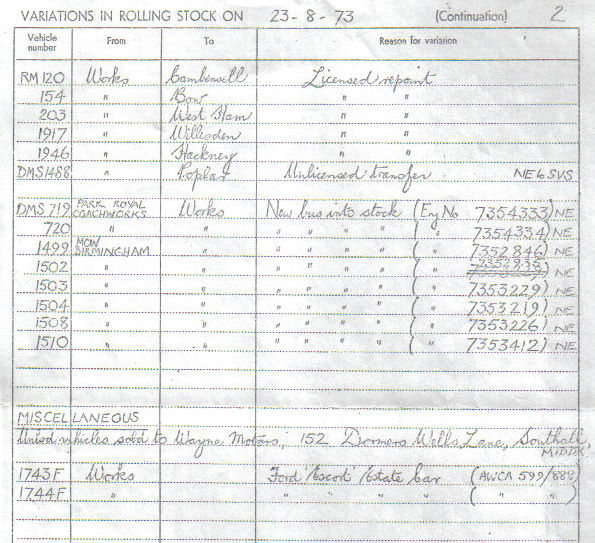 VARIATIONS IN ROLLING STOCK ON 23-8-73 (Continuation) 2
Vehicle number From To Reason for variation
RM 120 Works Camberwell Licensed repaint
154 " Bow " "
203 " West Ham " "
1917 " Willesden " "
1946 " Hackney " "
DMS 1488 " Poplar Unlicensed transfer. NE to SVS
DMS 719 PARK ROYAL COACHWORKS Works New bus into stock (Eng No 7354333) NE
720 " " " " " " ( " 7354334) NE
1499 MCW BIRMINGHAM " " " " " ( " 7352846) NE
1502 " " " " " " ( " ) NE
1503 " " " " " " ( " 7353229) NE
1504 " " " " " " ( " 7353219) NE
1508 " " " " " " ( " 7353226) NE
1510 " " " " " " ( " 7353412) NE
MISCELLANEOUS
vehicles sold to Wayne Motors, 152 Dormers Wells Lane, Southall, MIDDX.
1743F Works Ford 'Escort' Estate Car (AWCA 599/
1744F " " " " " ( " " )